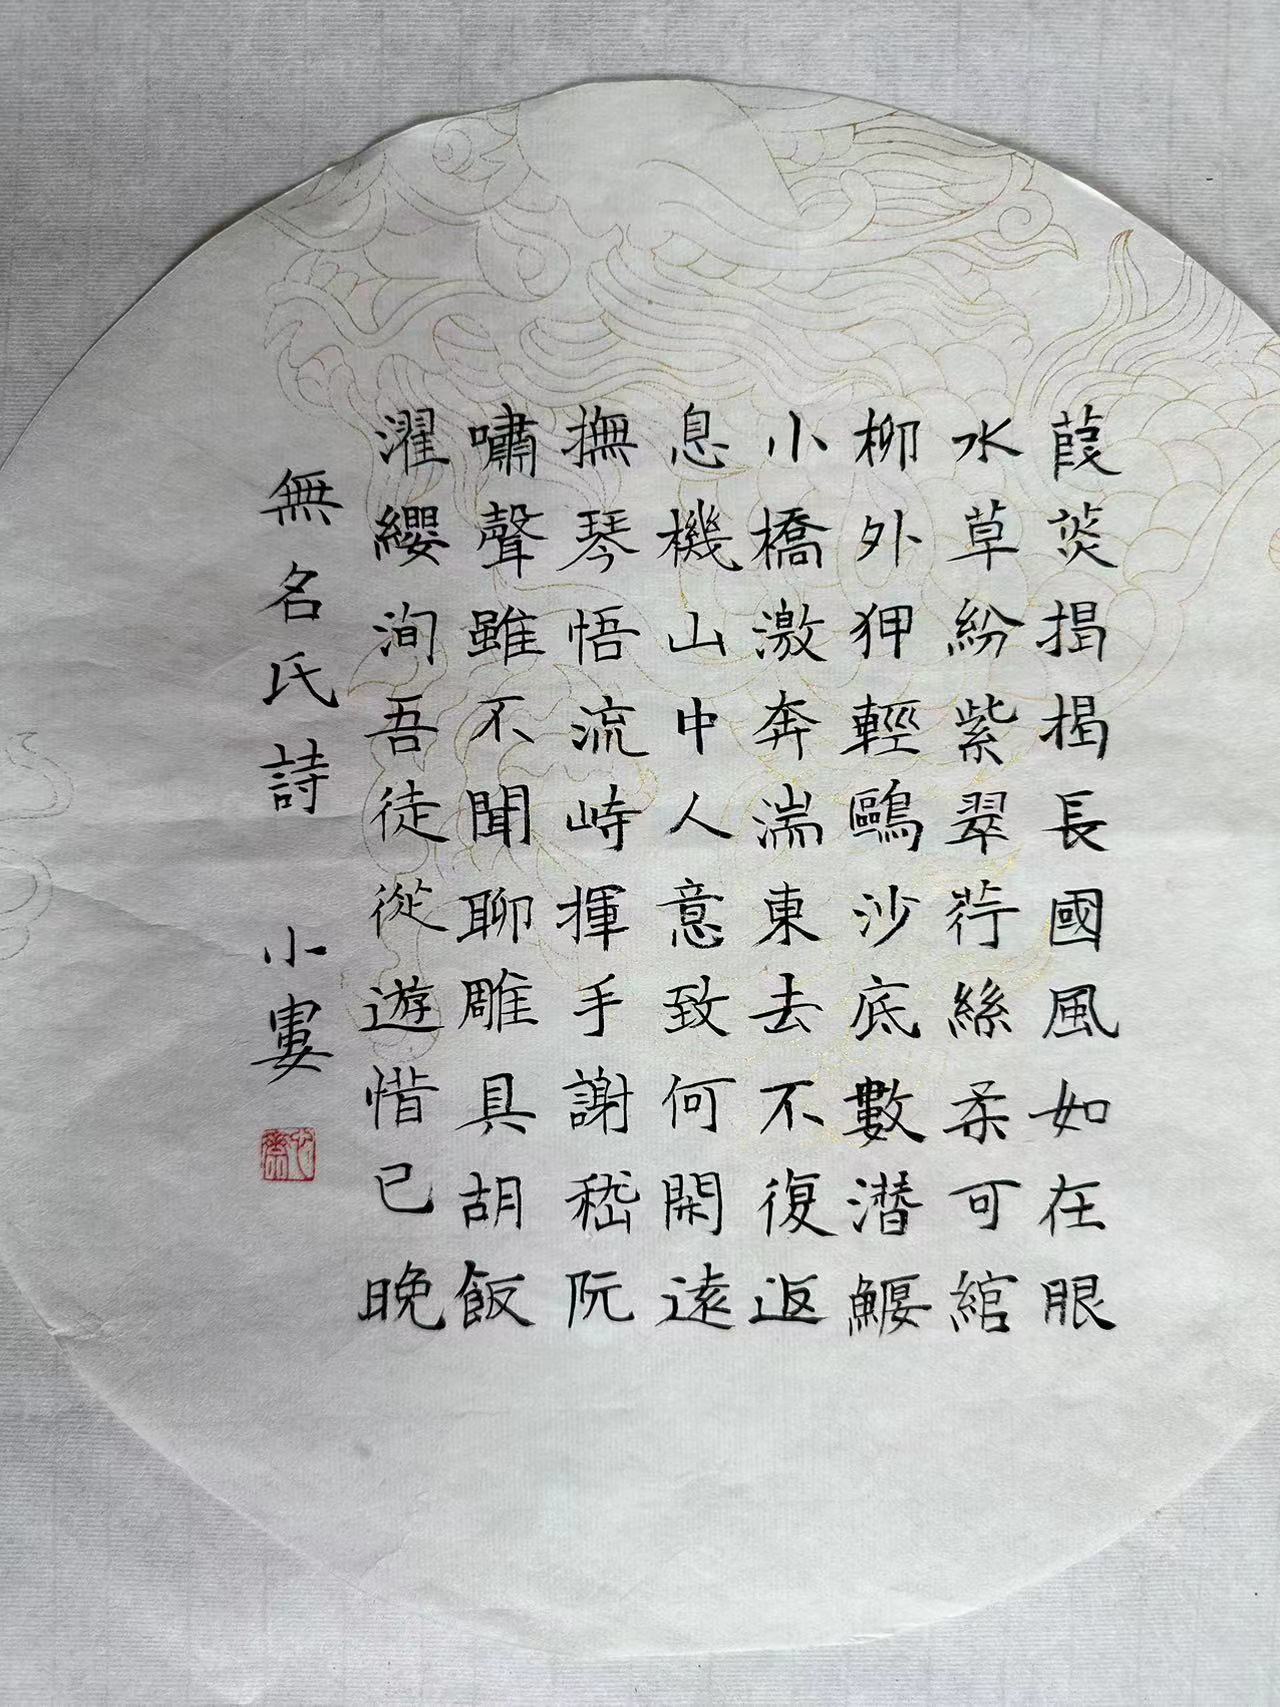 葭菼揭揭長國風如在眼
水草紛紫翠荇絲柔可綰
柳外狎輕鷗沙底數潛鰋
小橋激奔湍東去不復返
息機山中人意致何閑遠
撫琴悟流峙揮手謝嵇阮
嘯聲雖不聞聊雕具胡飯
濯纓洵吾徒從遊惜已晚
無名氏詩 小婁